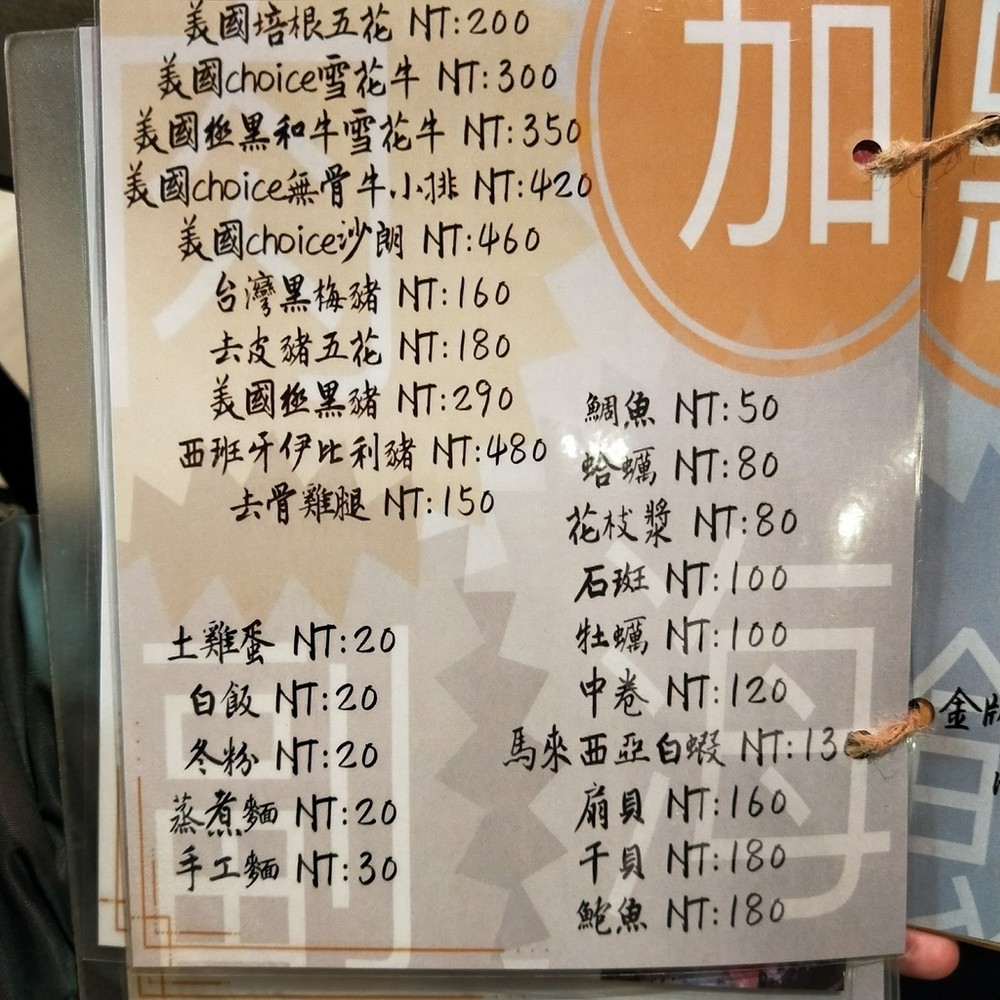 美國培根五花 NT:200
美國choice雪花牛 NT:300
美國極黑和牛雪花牛 NT:350
美國choice無骨牛小排 NT:420
美國choice沙朗 NT:460
台灣黑梅豬 NT:160
去皮豬五花 NT:180
美國極黑豬 NT:290
西班牙伊比利豬 NT:480
去骨雞腿 NT:150
土雞蛋 NT:20
白飯 NT:20
冬粉 NT:20
蒸煮麵 NT:20
手工麵 NT:30
加
點
肉
副
海
鯛魚 NT:50
蛤蠣 NT:80
花枝漿 NT:80
石斑 NT:100
牡蠣 NT:100
中卷 NT:120
馬來西亞白蝦 NT:130
扇貝 NT:160
干貝 NT:180
鮑魚 NT:180
金牌